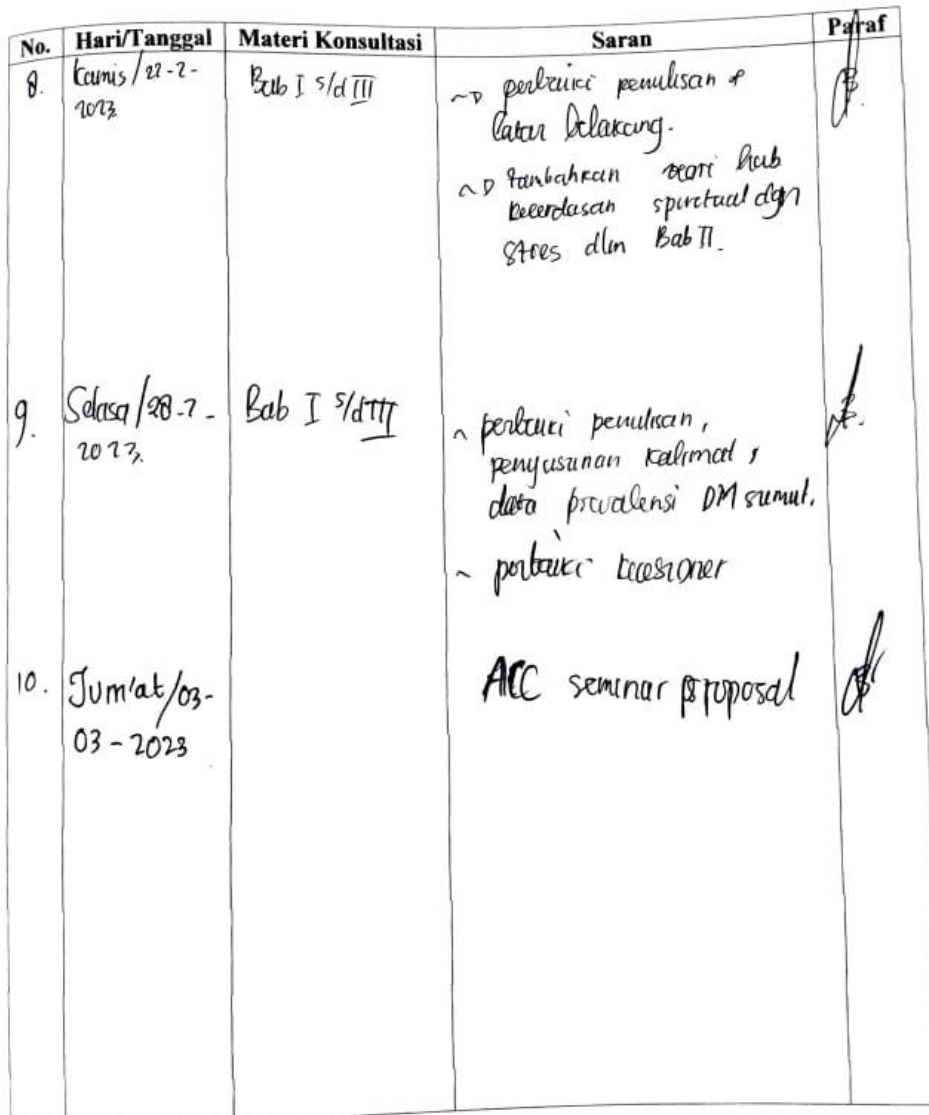 No. Hari/Tanggal Materi Konsultasi Saran Paraf
8. Kamis/22-2- Bab I s/d III ~> perbaiki penulisan &
2023 latar belakang.
~> tambahkan teori hub
kecerdasan spiritual dgn
stres dlm Bab II.
9. Selasa/28-2- Bab I s/d III ~ perbaiki penulisan,
2023. penyusunan kalimat,
data prevalensi DM sumut.
~ perbaiki kuesioner
10. Jum'at/03- ACC seminar proposal
03-2023